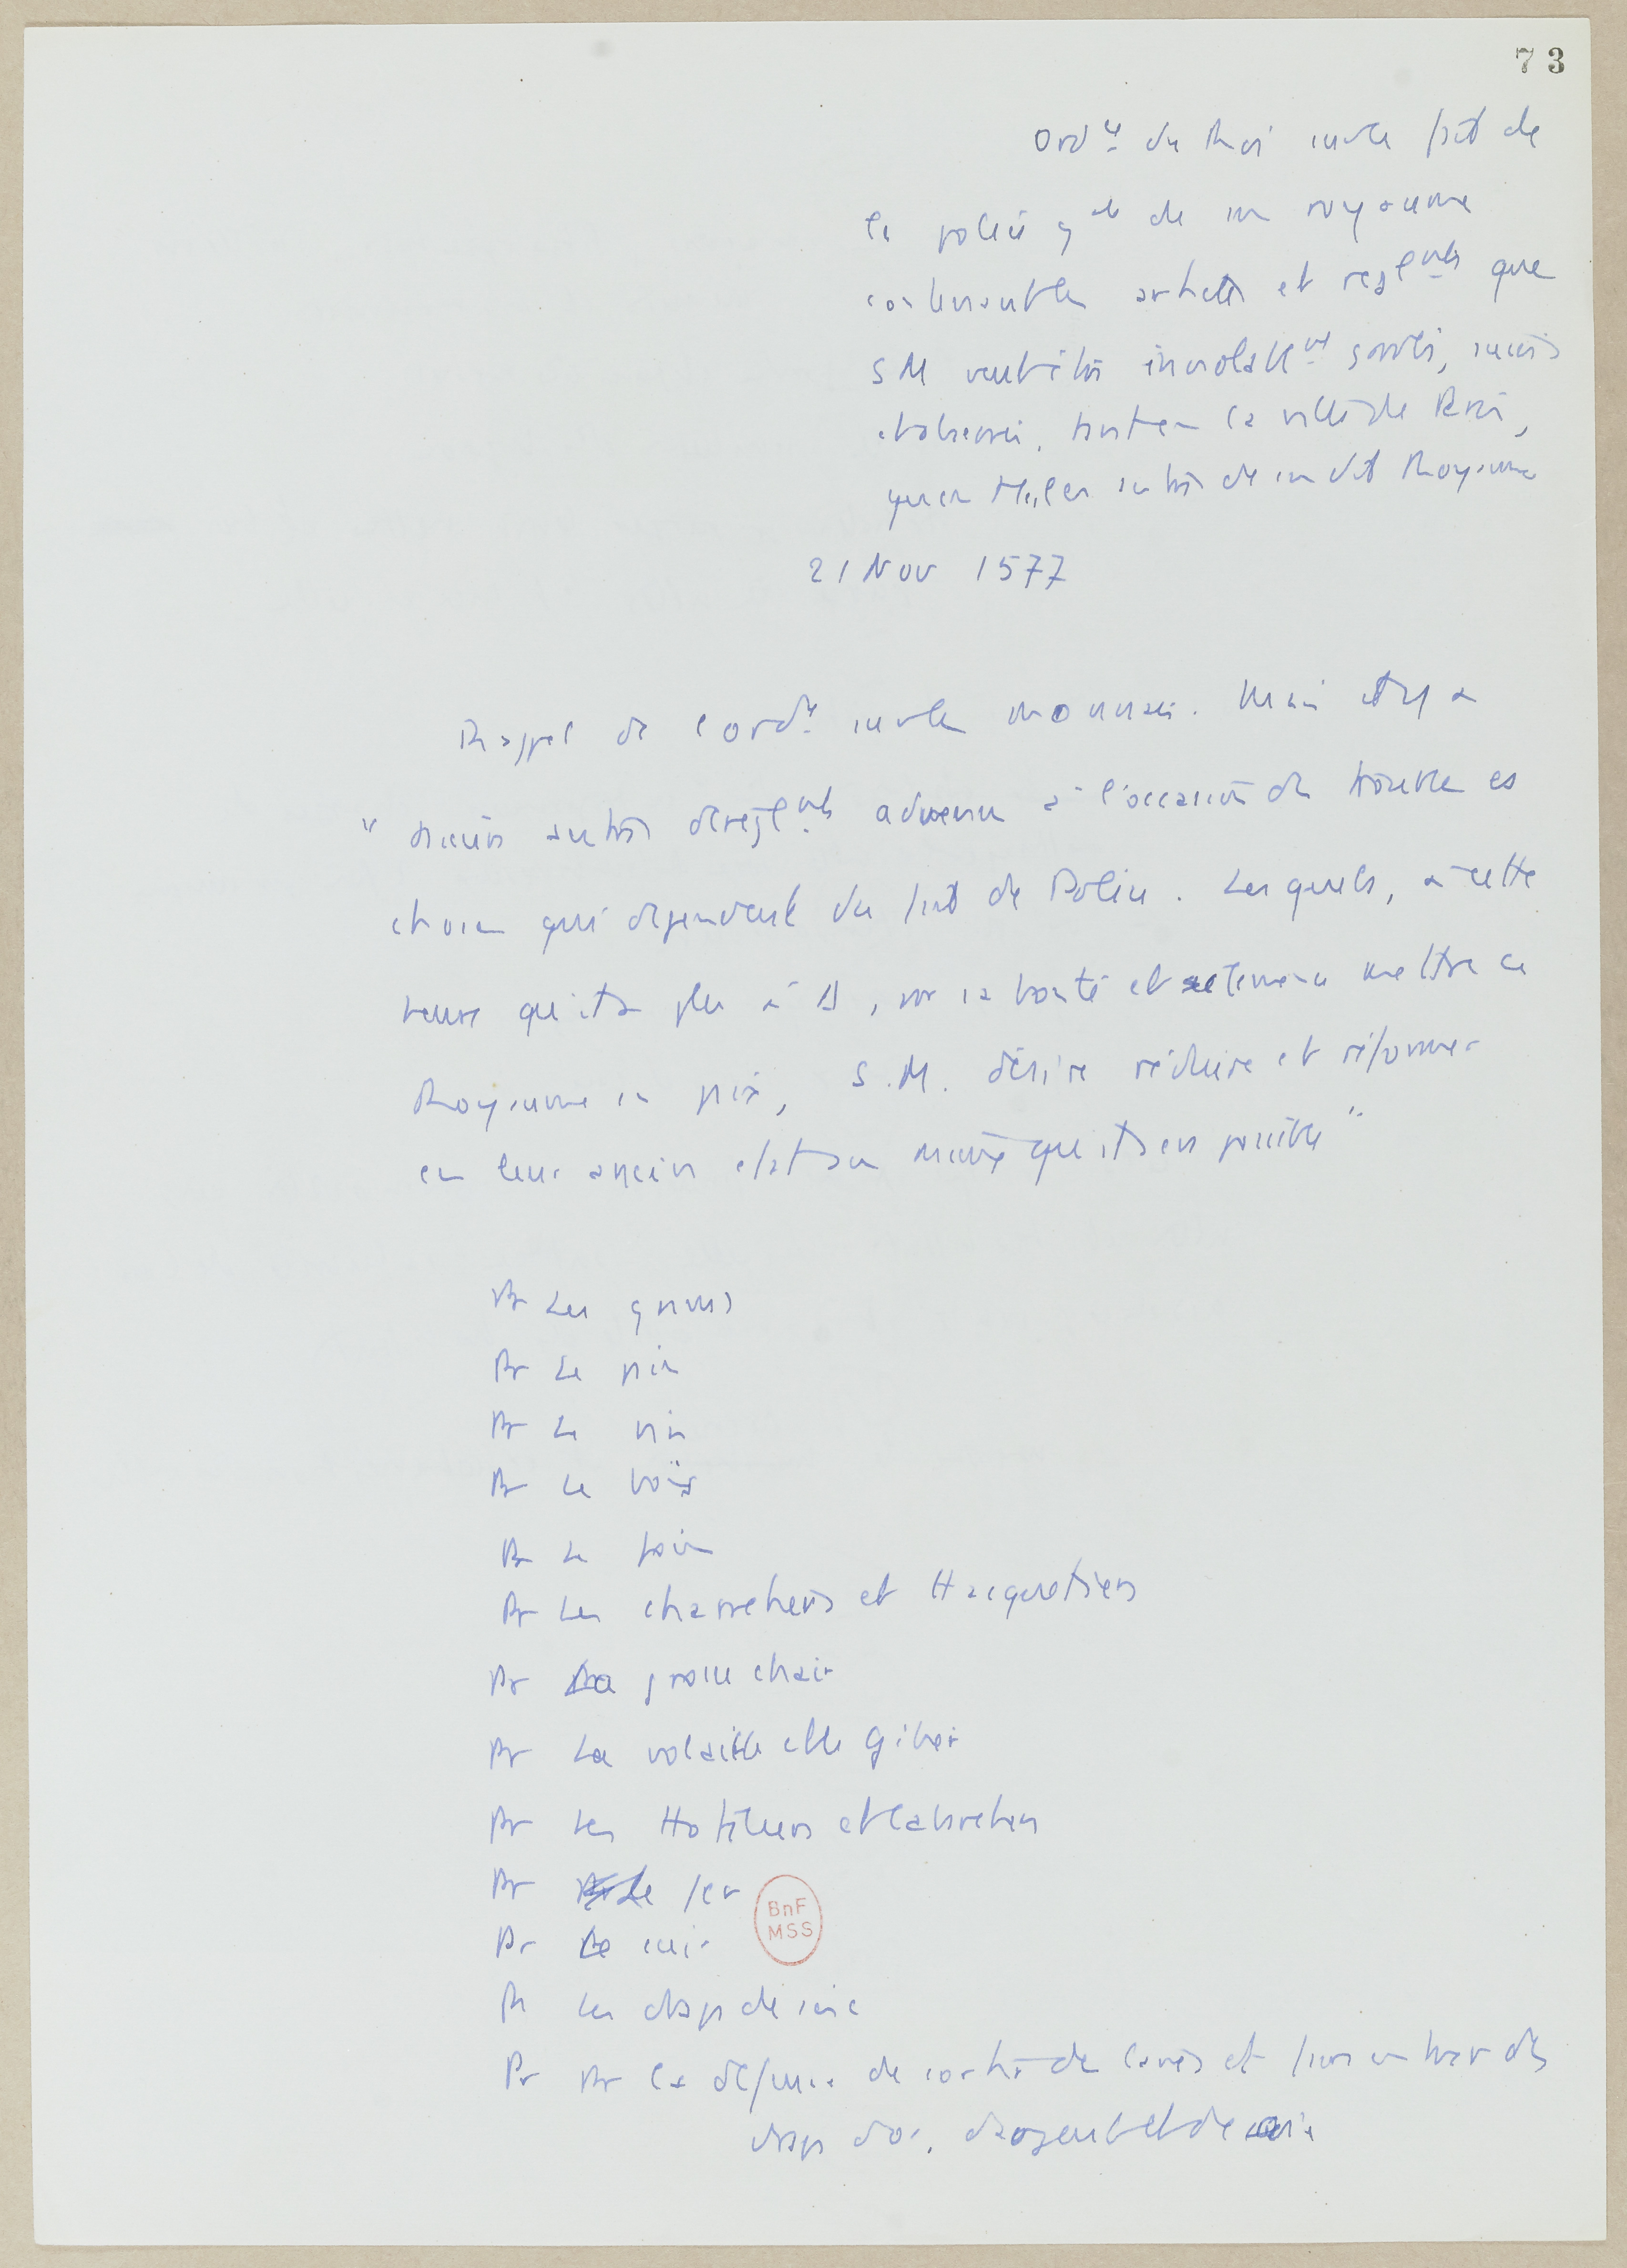 73
Ordce du Roi sur le fait de
la police gale de son royaume
contenant les articles et reglmts que
S M veult être inviolablmt gardés, suivis
et observés, tant en la ville de Paris,
qu'en Htes les autres de son dit Royaume
21 Nov 1577
Rappel de l'ordce sur les monnaies. Mais il y a
"plusieurs autres déréglmts advenus à l'occasion des troubles es
choses qui dépendent du fait de Police. Lesquels, à cette
heure qu'il a plu à D, par sa bonté et clémence mettre ce
Royaume en paix, S.M. désire réduire et réformer
en leur ancien état au mieux qu'il sera possible"
Pr Les grains
Pr Le pain
Pr Le vin
Pr Le bois
Pr Le foin
Pr Les charretiers et Hacquetiers
Pr La grosse chair
Pr La volaille et le Gibier
Pr Les Hoteliers et Cabaretiers
Pr Le fer
Pr Le cuir
Pr Les draps de soie
Pr Pr la défense de sortir des laines et faire entrer des
draps d'or, d'argent et de soie
BnF
MSS